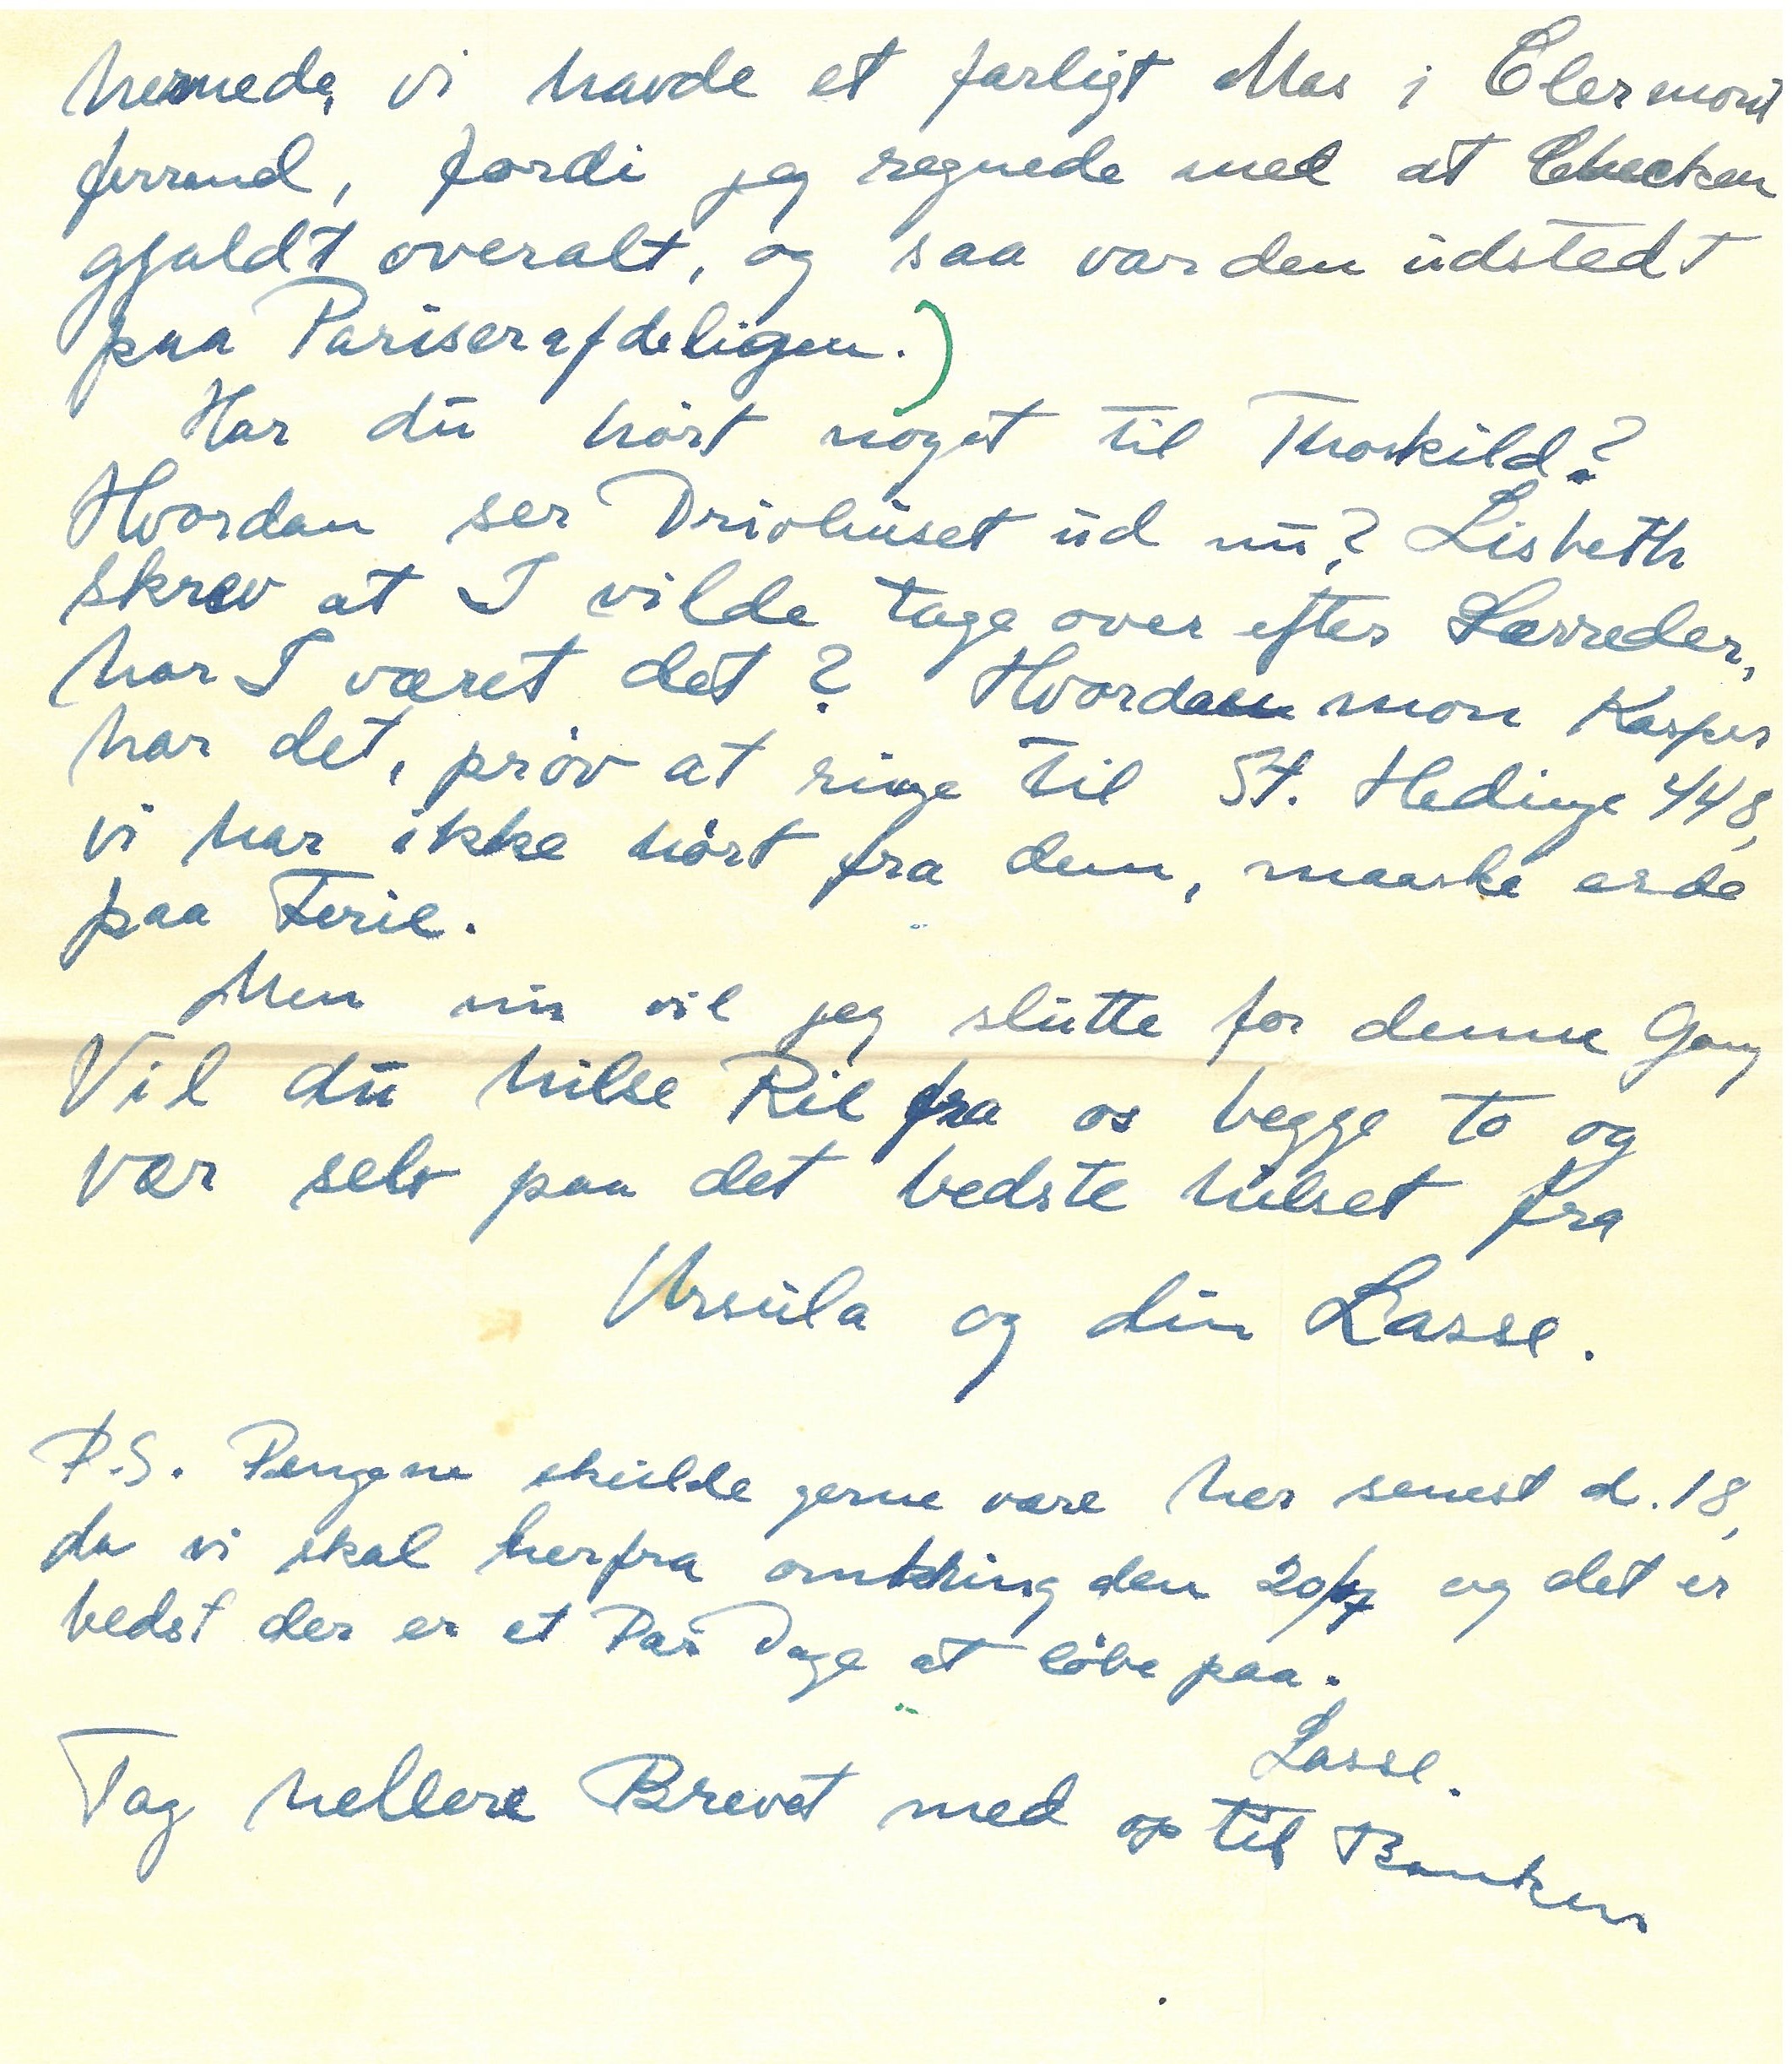 hernede, vi havde et farligt Mas i Clermont
ferrand, fordi jeg regnede med at Checken
gjaldt overalt, og saa var den udstedt
paa Pariserafdeligen.)
Har du hørt noget til Thorkild?
Hvordan ser Drivhuset ud nu? Lisbeth
skrev at I vilde tage over efter Lærreder,
har I været det? Hvordan mon Kasper
har det, prøv at ringe til St. Hedinge 448,
vi har ikke hørt fra dem, maaske er de
paa Ferie.
Men nu vil jeg slutte for denne Gang
Vil du hilse Ril fra os begge to og
vær selv paa det bedste hilset fra
Ursula og din Lasse.
P.S. Pengene skulde gerne være her senest d. 18,
da vi skal herfra omkring den 20/7 og det er
bedst der er et Par Dage at løbe paa.
Lasse.
Tag hellere Brevet med op til Banken